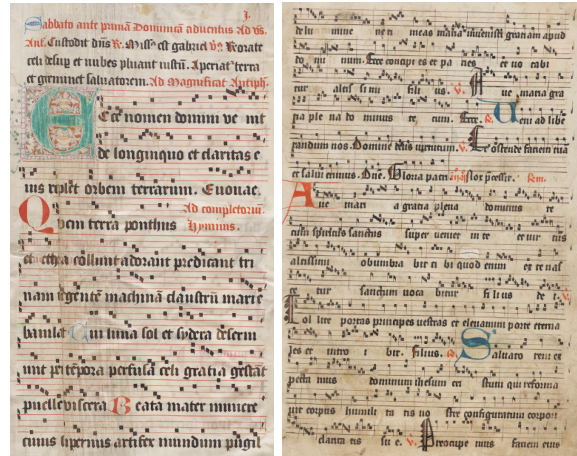 3.
Sabbato ante primā Dominicā adventus Ad vs.
Ant. Custodit dn̄s ℟. Miss⁹ est gabriel ℣. Rorate
celi desup et nubes pluant iustū. Aperiat terra
et germinet salvatorem. Ad Magnificat Antiph.
Ecce nomen domini ve nit
de longinquo et claritas e
ius replet orbem terrarum. Evouae.
Ad completoriū.
Quem terra ponthus Hymnus.
et ethra collunt adorant predicant tri
nam regentē machinā claustrū marie
baiulat Cui luna sol et sydera deserui
unt per tēpora perfusa celi gratia gestāt
puelle viscera Beata mater munere
cuius supernus artifex mundum pugil
ne ti meas maria invenisti gratiam apud
do mi num. Ecce concipi es et pa ries et vo cabi
tur alti si mi fili us. ℣. A ue maria gra
pa ple na do minus te cum. Ecce. ℟. Veni ad libe
randum nos. Domine deus virtutum. ℣. Et ostende faciem tuā
et salvi erimus. Dne. Gloria patri
A ue mari a gratia plena dominus te
cum spiritus sanctus super veniet in te et vir tus
altissimi obumbra bit ti bi quod enim ex te nas
ce tur sanctum voca bitur fi li us de i. ℣.
Tol lite portas principes vestras et elevamini porte eterna
les et intro i bit. Filius. ℟. Salvato rem ex
pecta mus dominum ihesum cri stum qui reforma
bit corpus humili ta tis no stre configuratum corpori
clarita tis su e. ℣. Preocupe mus faciem eius